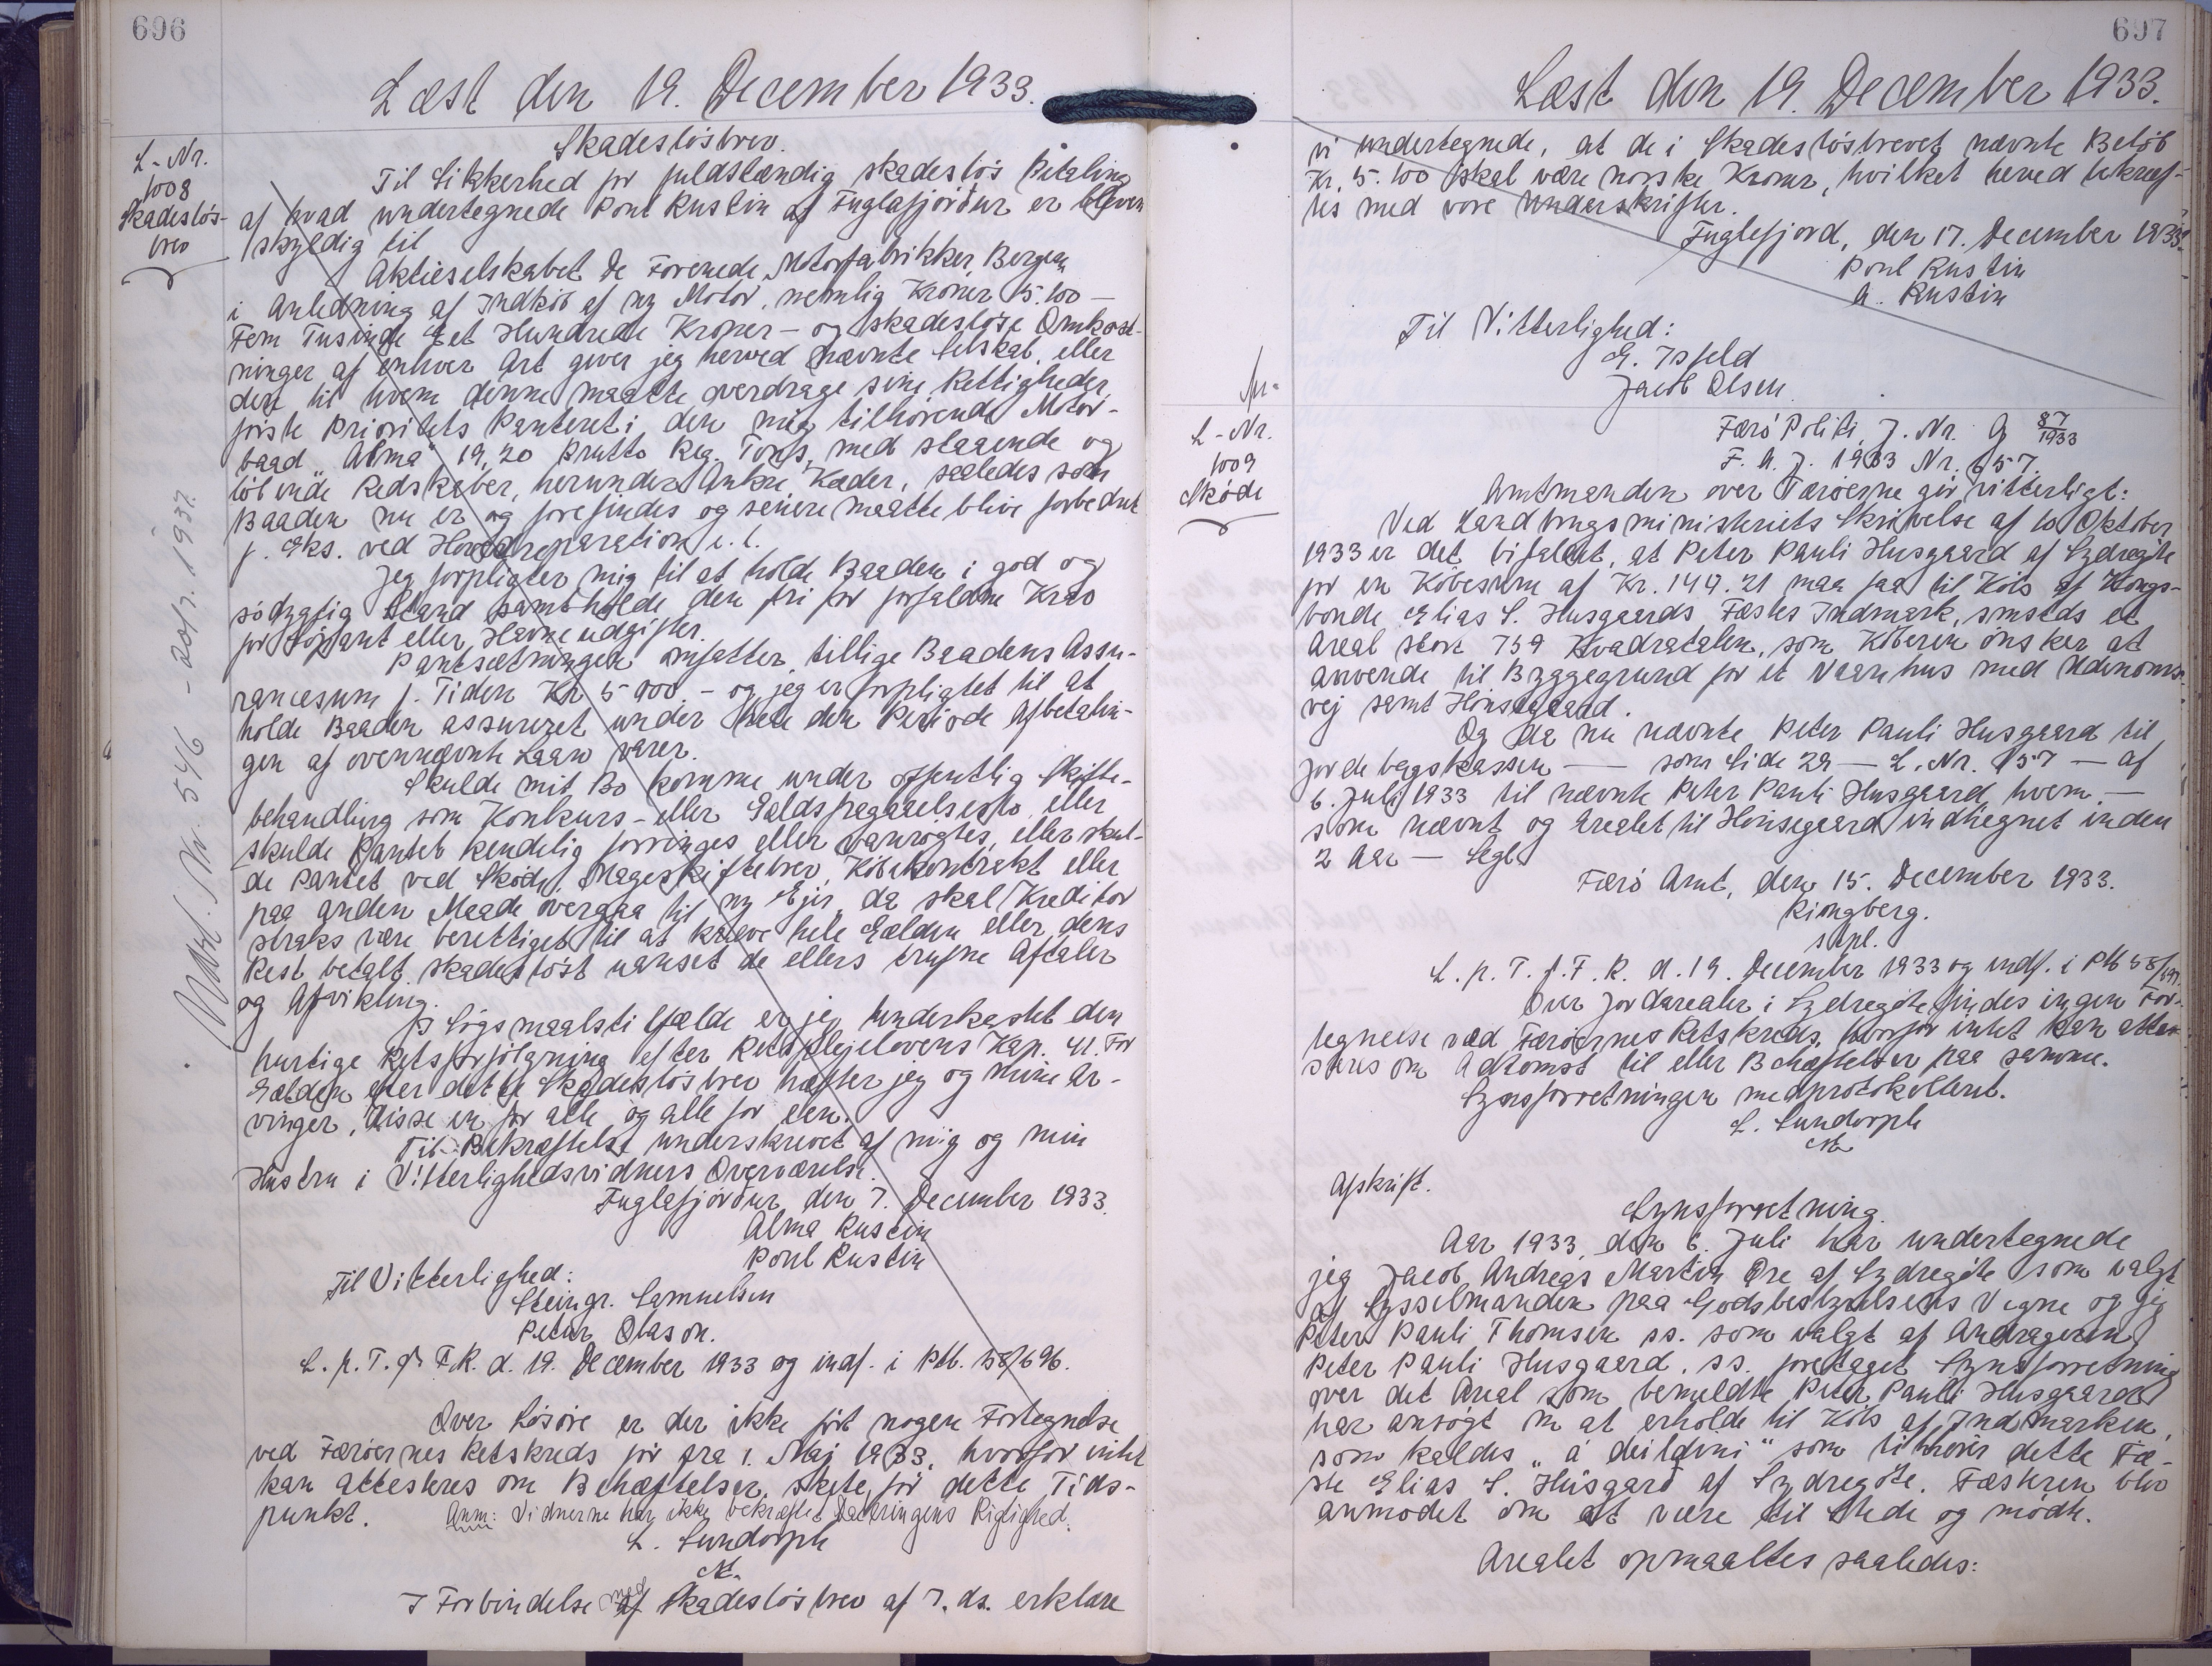 696
Læst den 19. December 1933.
L-Nr.
1008
Skadesløs-
brev
Skadesløsbrev.
Til Sikkerhed for fuldstændig skadesløs Betaling
af hvad undertegnede Poul Rustin af Fuglafjördur er bleven
skyldig til
Aktieselskabet De Forenede Motorfabrikker, Bergen
i Anledning af Indkøb af ny Motor, nemlig Kroner 5.100 —
Fem Tusinde Et Hundrede Kroner — og skadesløse Omkost-
ninger af enhver Art giver jeg herved nævnte Selskab, eller
den til hvem denne maatte overdrage sine Rettigheder,
første Prioritets Panteret i den mig tilhørende Motor-
baad „Alma" 19,20 Brutto Reg. Tons, med staaende og
løbende Redskaber, herunder Anker, Kæder, saaledes som
Baaden nu er og forefindes og senere maatte blive forbedret
f. Eks. ved Hovedreparation e. l.
Jeg forpligter mig til at holde Baaden i god og
sødygtig Stand samt holde den fri for forfaldne Krav
for Søpant eller Havneudgifter.
Pantsætningen omfatter tillige Baadens Assu-
rancesum f. Tiden Kr 5 000. – og jeg er forpligtet til at
holde Baaden assureret under hele den Periode Afbetalin-
gen af ovennævnte Laan varer.
Skulde mit Bo komme under offentlig Skifte-
behandling som Konkurs- eller Gældsfragaaelsesbo, eller
skulde Pantet kendelig forringes eller vanrøgtes, eller skul-
de Pantet ved Skøde, Mageskiftebrev, Købekontrakt eller
paa anden Maade overgaa til ny Ejer, da skal Kreditor
straks være berettiget til at kræve hele Gælden eller dens
Rest betalt skadesløst uanset de ellers trufne Aftaler
og Afvikling.
I Søgsmaalstilfælde er jeg underkastet den
hurtige Retsforfølgning efter Retsplejelovens Kap. 41. For
Gælden efter dette Skadesløsbrev hæfter jeg og mine Ar-
vinger, disse en for alle og alle for een.
Til Bekræftelse underskrevet af mig og min
Hustru i Vitterlighedsvidners Overværelse.
Fuglafjördur, den 7. December 1933.
Alma Rustin
Poul Rustin
Til Vitterlighed:
Steingr. Samuelsen
Petur Olason.
L. p. T. f. F. R. d. 19. December 1933 og indf. i Ptb. 58/696.
Over Løsøre er der ikke ført nogen Fortegnelse
ved Færøernes Retskreds før fra 1. Maj 1933, hvorfor intet
kan attesteres om Behæftelser, skete før dette Tids-
punkt. Anm: Vidnerne har ikke bekræftet Dateringens Rigtighed.
L. Lundorph
I Forbindelse med Skadesløsbrev af 7. ds. erklære
Udsl. Nr. 546 - 20/7. 1937.
697
Læst den 19. December 1933.
vi undertegnede, at de i Skadesløsbrevet nævnte Beløb
Kr. 5.100 skal være norske Kroner, hvilket herved bekræf-
tes med vore Underskrifter.
Fuglefjord, den 17. December 1933.
Poul Rustin
A. Rustin
Til Vitterlighed:
E. Isfeld
Jacob Olsen.
L-Nr.
1009
Skøde
Færø Politi, J. Nr. G 87/1933
F. A. J. 1933 Nr. 657.
Amtmanden over Færøerne gør vitterligt:
Ved Landbrugsministeriets Skrivelse af 10 Oktober
1933 er det bifaldet, at Peter Pauli Husgaard af Sydregøte
for en Købesum af Kr. 149.21 maa faa til Købs af Kongs-
bonde Elias S. Husgaards Fæstes Indmark, smsteds et
Areal stort 759 Kvadratalen, som Køberen ønsker at
anvende til Byggegrund for et Vaanhus med Udenoms-
vej samt Hønsegaard.
Og da nu nævnte Peter Pauli Husgaard til
Jordebogskassen — som Side 29 — L. Nr. 157 — af
6. Juli 1933 til nævnte Peter Pauli Husgaard hvem —
som nævnt og Arealet til Hønsegaard indhegnet inden
2 Aar — Segl.
Færø Amt, den 15. December 1933.
Ringberg.
stpl.
L. p. T. f. F. R. d. 19. December 1933 og indf. i Ptb 58/697.
Over Jordarealer i Sydregøte findes ingen For-
tegnelse ved Færøernes Retskreds, hvorfor intet kan atte-
steres om Adkomst til eller Behæftelser paa samme.
Synsforretningen medprotokolleret.
L. Lundorph
Afskrift.
Synsforretning.
Aar 1933, den 6. Juli har undertegnede
jeg Jacob Andreas Martin Øre af Sydregøte som valgt
af Sysselmanden paa Godsbestyrelsens Vegne og jeg
Peter Pauli Thomsen ss. som valgt af Andrageren
Peter Pauli Husgaard. ss. foretaget Synsforretning
over det Areal som bemeldte Peter Pauli Husgaard
har ansøgt om at erholde til Købs af Indmarken,
som kaldes „á deildini" som tilhører dette Fæ-
ste Elias S. Húsgard af Sydregøte. Fæsteren blev
anmodet om at være til Stede og mødte.
Arealet opmaaltes saaledes: